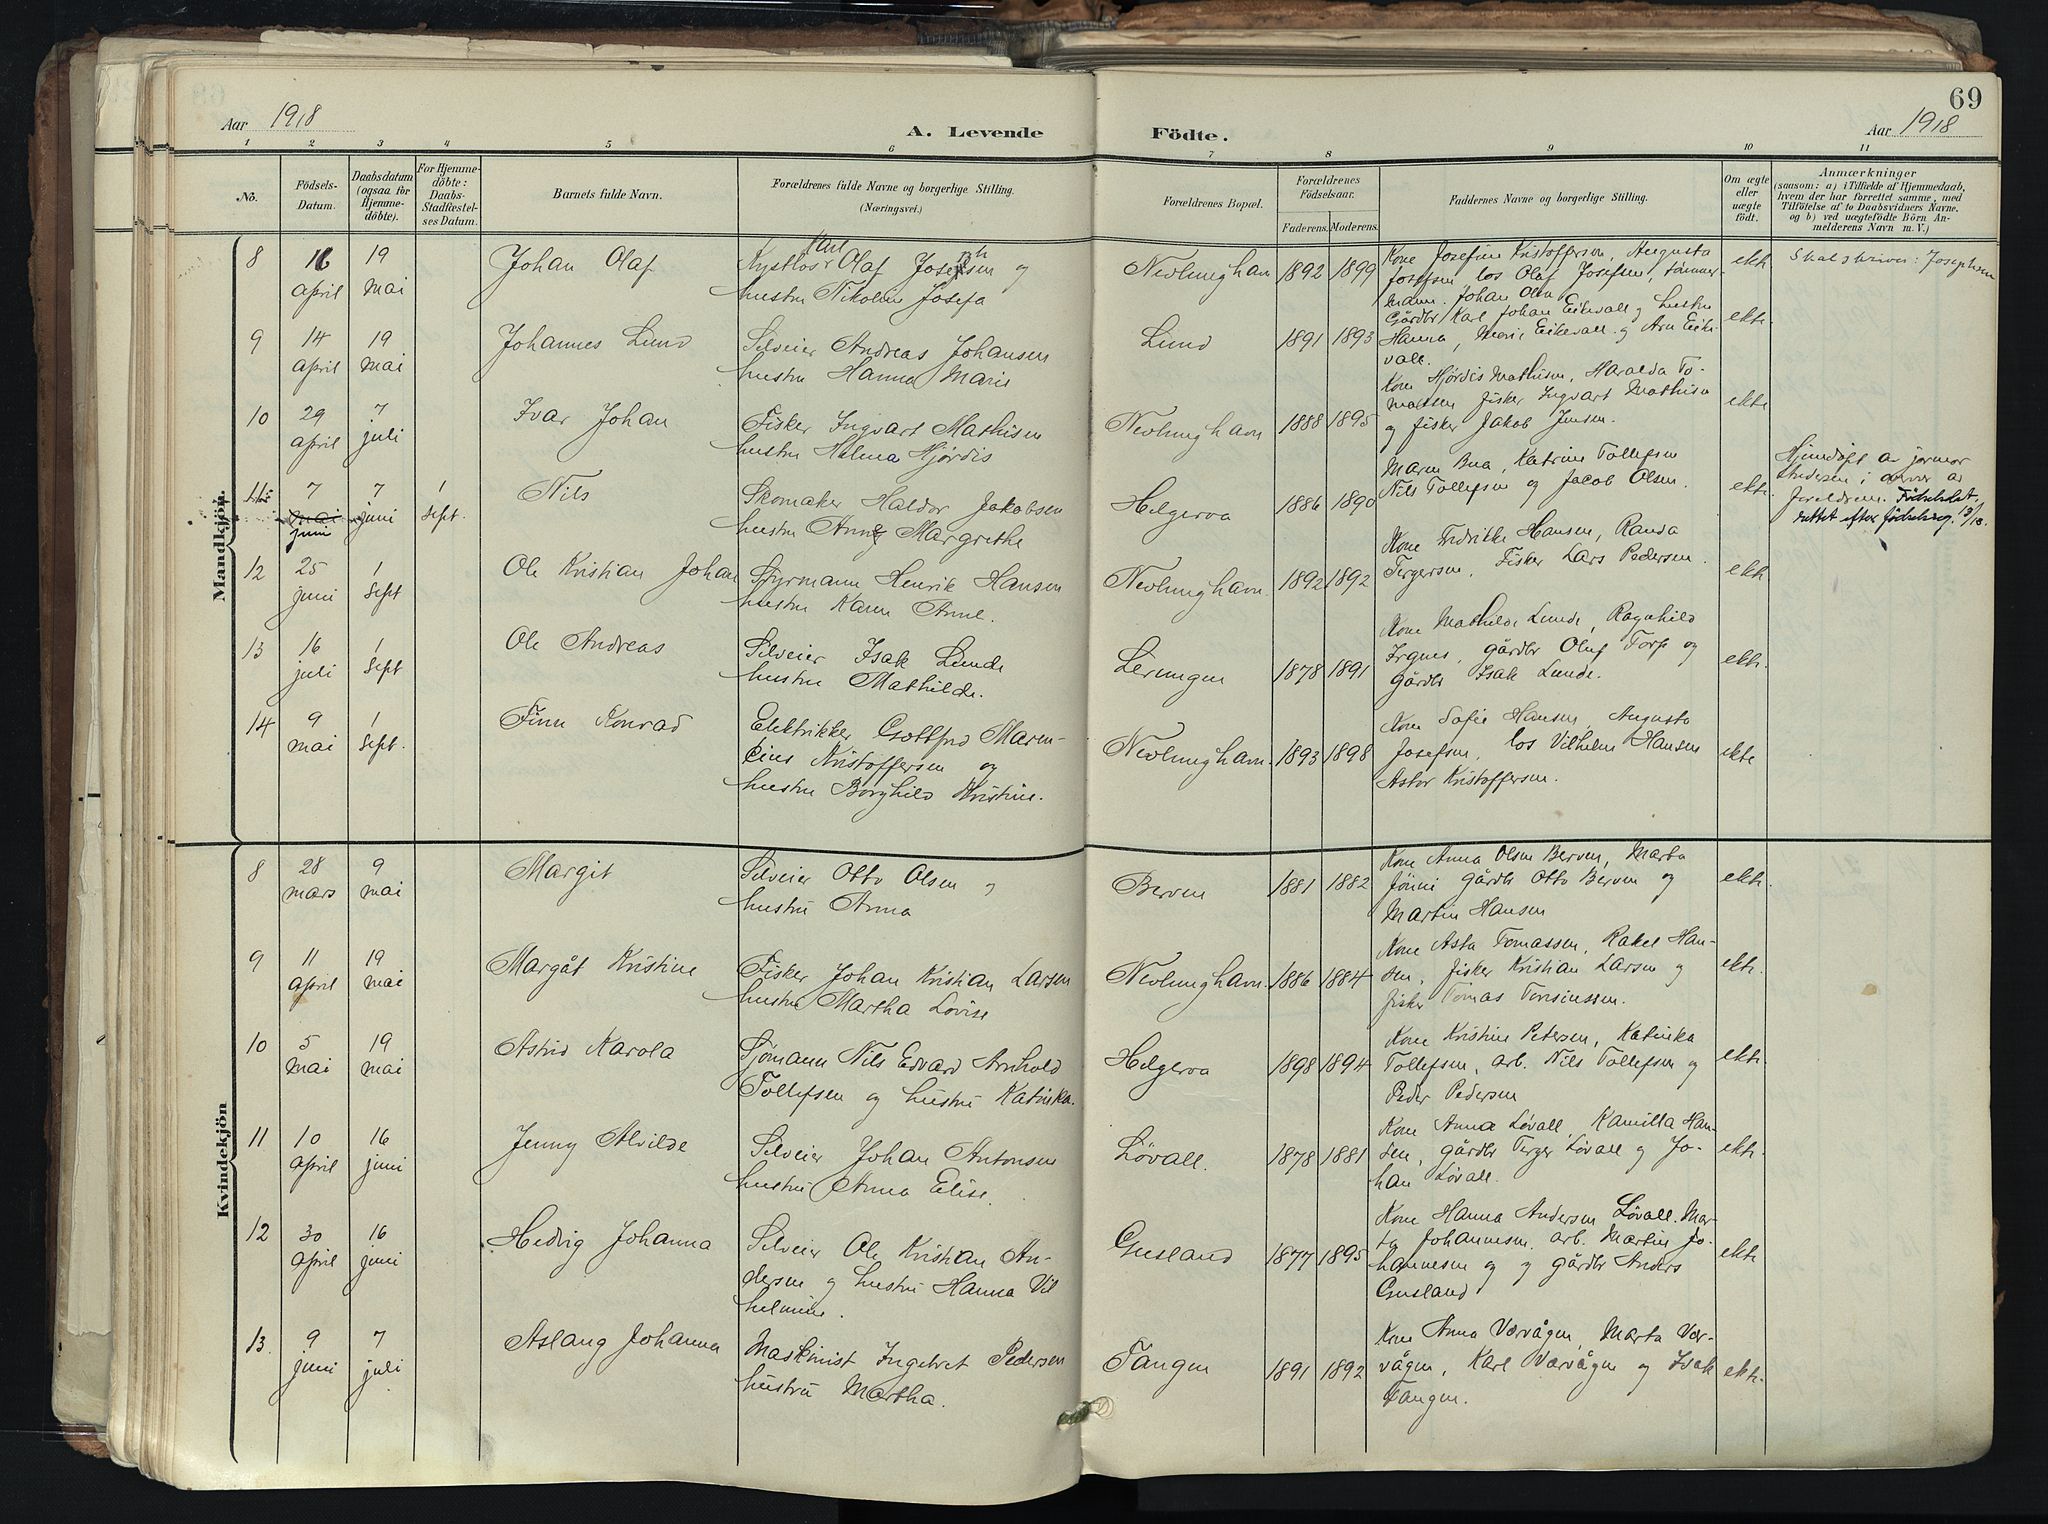 69
Aar 1918
A. Levende Födte.
Aar 1918
1 2 3 4 5 6 7 8 9 10 11
No.
Födsels-
Datum.
Daabsdatum
(ogsaa for
Hjemme-
döbte).
For Hjemme-
döbte:
Daabs-
Stadfæstel-
ses Datum.
Barnets fulde Navn.
Forældrenes fulde Navne og borgerlige Stilling.
(Næringsvei.)
Forældrenes Bopæl.
Forældrenes
Födselsaar.
Faderens. Moderens.
Faddernes Navne og borgerlige Stilling.
Om ægte
eller
uægte
födt.
Anmærkninger
(saasom: a) i Tilfælde af Hjemmedaab,
hvem der har forrettet samme, med
Tilföielse af to Daabsvidners Navne.
og b) ved uægtefödte Börn An-
melderens Navn m. V.)
Mandkjön.
8
16
april
19
mai
Johan Olaf
Karl
Kystlos Olaf Josephsen og
hustru Nikoline Josefa
Nevlunghavn
1892 1899
Kone Josefine Kristoffersen, Augusta
Josefsen, los Olaf Josefsen, tømmer-
mann Johan Olsen
ekte
Skal skrives: Josephsen
9
14
april
19
mai
Johannes Lund
Selveier Andreas Johansen
hustru Hanna Marie
Lund
1891 1893
Gårdbr Karl Johan Eikevall og hustru
Hanna, Marie Eikevall og Arn Eike-
vall.
ekte
10
29
april
7
juli
Ivar Johan
Fisker Ingvart Mathisen
hustru Helma Hjørdis
Nevlunghavn
1888 1895
Kone Hjørdis Mathisen, Haralda To-
massen fisker Ingvart Mathisen
og fisker Jakob Jensen.
ekte
11
7
mai
juni
7
juni
1
sept.
Nils
Skomaker Haldor Jakobsen
hustru Anne Margrethe
Helgeroa
1886 1890
Maren Bua, Katrine Tollefsen
Nils Tollefsen og Jacob Olsen.
ekte
Hjemdøpt av jormor
Andersen i nærvær av
foreldrene. Födselsdat.
rettet efter födselsreg.
12
25
juni
1
sept
Ole Kristian Johan
Styrmann Henrik Hansen
hustru Karen Anne.
Nevlunghavn.
1892 1892
Kone Fredrikke Hansen, Randa
Tergersen, Fisker Lars Pedersen.
ekte
13
16
juli
1
sept
Ole Andreas
Selveier Isak Lunde
hustru Mathilde.
1878 1891
Kone Mathilde Lunde, Ragnhild
gårdbr Oluf Torp og
gårdbr Isak Lunde.
ekte
14
9
mai
1
sept.
Finn Konrad
Elektrikker Gottfred Maren-
sius Kristoffersen og
hustru Borghild Kristine.
Nevlunghavn.
1893 1898
Kone Sofie Hansen, Augusta
Josefsen, los Vilhelm Hansen
Astor Kristoffersen.
ekte
Kvindekjön
8
28
mars
9
mai
Margit
Selveier Otto Olsen og
hustru Anna
Berven
1881 1882
Kone Anna Olsen Berven, Marta
gårdbr Otto Berven og
Martin Hansen
ekte
9
11
april
19
mai
Margåt Kristine
Fisker Johan Kristian Larsen
hustru Martha Lovise
Nevlunghavn.
1886 1884
Kone Asta Tomassen, Rakel Han-
sen, fisker Kristian Larsen og
fisker Tomas
ekte
10
5
mai
19
mai
Astrid Karola
Sjømann Nils Edvard Arnhold
Tollefsen og hustru Katinka.
Helgeroa
1898 1894
Kone Kristine Petersen, Katinka
Tollefsen, arb. Nils Tollefsen og
Peder Pedersen
ekte
11
10
april
16
juni
Jenny Alvilde
Selveier Johan Antonsen
hustru Anna Elise.
Løvall.
1878 1881
Kone Anna Løvall, Kamilla Han-
sen, gårdbr Terger Løvall og Jo-
han Løvall.
ekte
12
30
april
16
juni
Hedvig Johanna
Selveier Ole Kristian An-
dersen og hustru Hanna Vil
helmine.
Gusland
1877 1895
Kone Hanna Andersen Løvall. Mar-
ta Johannesen, arb. Martin Jo-
hannesen og og gårdbr Anders
Gusland
ekte
13.
9
juni
7
juli
Aslaug Johanna
Maskinist Ingebret Pedersen
hustru Martha.
Tangen
1891 1892
Kone Anna Værvågen, Marta Vær-
vågen, Karl Værvågen og Isak
Tangen.
ekte.